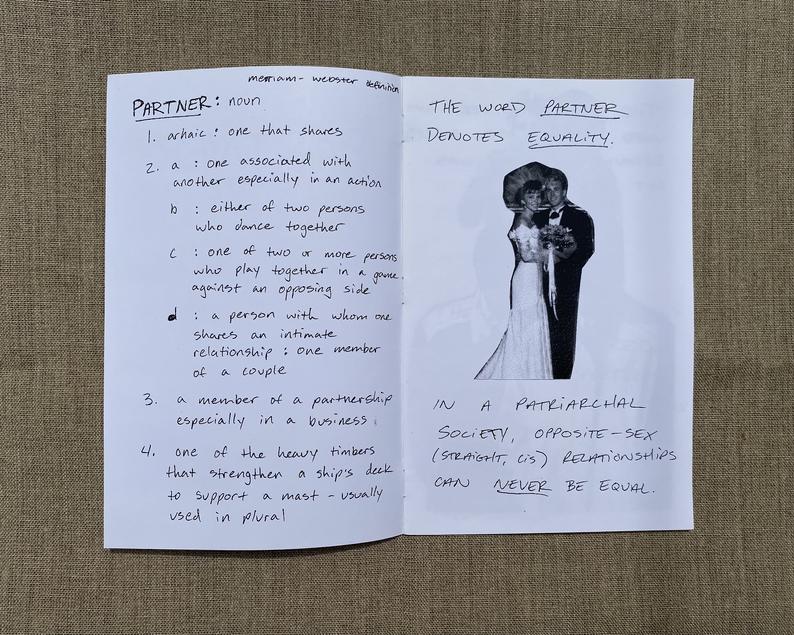 merriam-webster definition
PARTNER: noun
1. arhaic : one that shares
2. a : one associated with
another especially in an action
b : either of two persons
who dance together
c : one of two or more persons
who play together in a game
against an opposing side
d : a person with whom one
shares an intimate
relationship : one member
of a couple
3. a member of a partnership
especially in a business
4. one of the heavy timbers
that strengthen a ship's deck
to support a mast - usually
used in plural
THE WORD PARTNER
DENOTES EQUALITY.
IN A PATRIARCHAL
SOCIETY, OPPOSITE-SEX
(STRAIGHT, CIS) RELATIONSHIPS
CAN NEVER BE EQUAL.